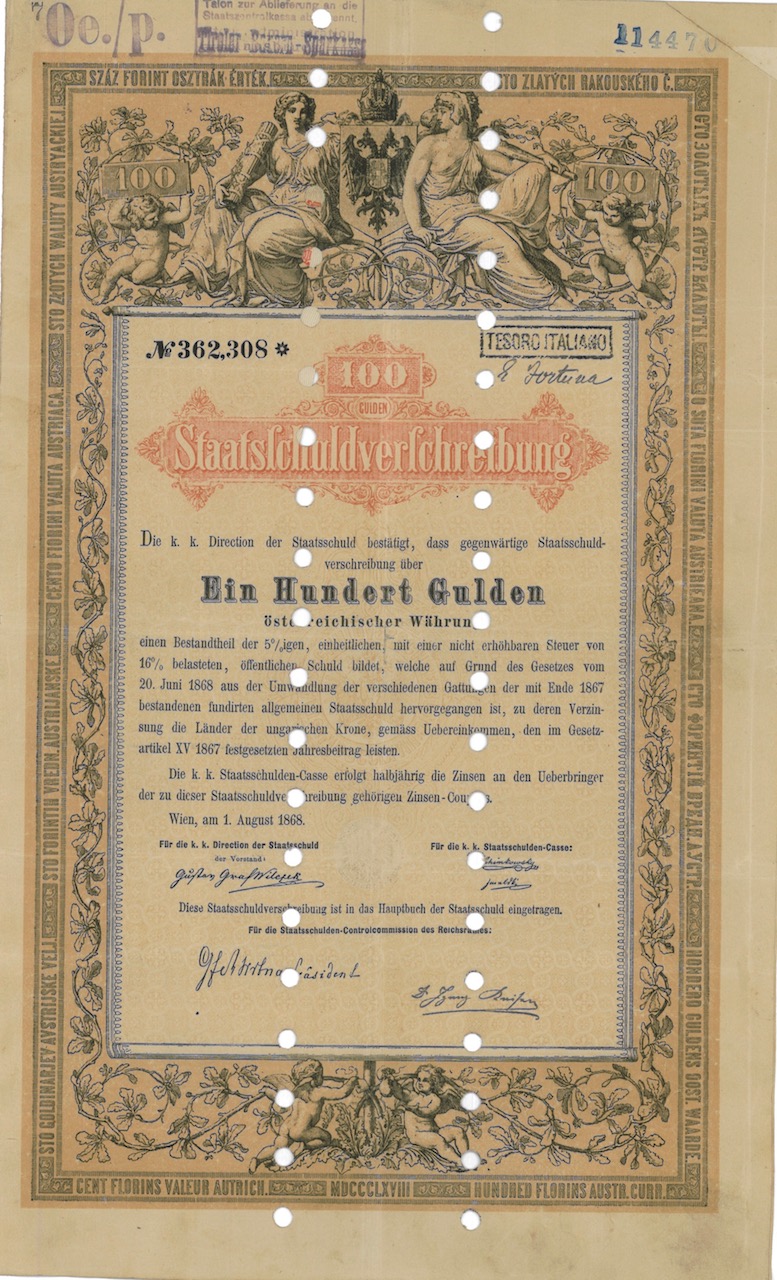 Oe./p.
Talon zur Ablieferung an die
Staatszentralkassa
Tiroler Sparkasse
114470
SZÁZ FORINT OSZTRÁK ÉRTÉK.
STO ZLATÝCH RAKOUSKÉHO Č.
STO ZŁOTYCH WALUTY AUSTRYACKIEJ
CENTO FIORINI VALUTA AUSTRIACA
STO FORINTIH VREDN. AUSTRIJANSKE
STO GOLDINARJEV AVSTRIJSKE VELJ.
100
100
СТО ЗОЛОТЫХЪ
O SUTA FLORINI VALUTA AUSTRIEANA
СТО ФОРИНТИЙ ВРЕДН. АУСТР.
HONDERD GULDENS OOST. WAARDE
№ 362,308 *
TESORO ITALIANO
E Fortuna
100
GULDEN
Staatsſchuldverſchreibung
Die k. k. Direction der Staatsschuld bestätigt, dass gegenwärtige Staatsschuld-
verschreibung über
Ein Hundert Gulden
österreichischer Währung
einen Bestandtheil der 5%igen, einheitlichen, mit einer nicht erhöhbaren Steuer von
16% belasteten, öffentlichen Schuld bildet, welche auf Grund des Gesetzes vom
20. Juni 1868 aus der Umwandlung der verschiedenen Gattungen der mit Ende 1867
bestandenen fundirten allgemeinen Staatsschuld hervorgegangen ist, zu deren Verzin-
sung die Länder der ungarischen Krone, gemäss Uebereinkommen, den im Gesetz-
artikel XV 1867 festgesetzten Jahresbeitrag leisten.
Die k. k. Staatsschulden-Casse erfolgt halbjährig die Zinsen an den Ueberbringer
der zu dieser Staatsschuldverschreibung gehörigen Zinsen-Coupons.
Wien, am 1. August 1868.
Für die k. k. Direction der Staatsschuld
der Vorstand:
Gustav Graf Wilczek
Für die k. k. Staatsschulden-Casse:
Diese Staatsschuldverschreibung ist in das Hauptbuch der Staatsschuld eingetragen.
Für die Staatsschulden-Controlcommission des Reichsrathes:
Präsident
CENT FLORINS VALEUR AUTRICH.
MDCCCLXVIII
HUNDRED FLORINS AUSTR. CURR.